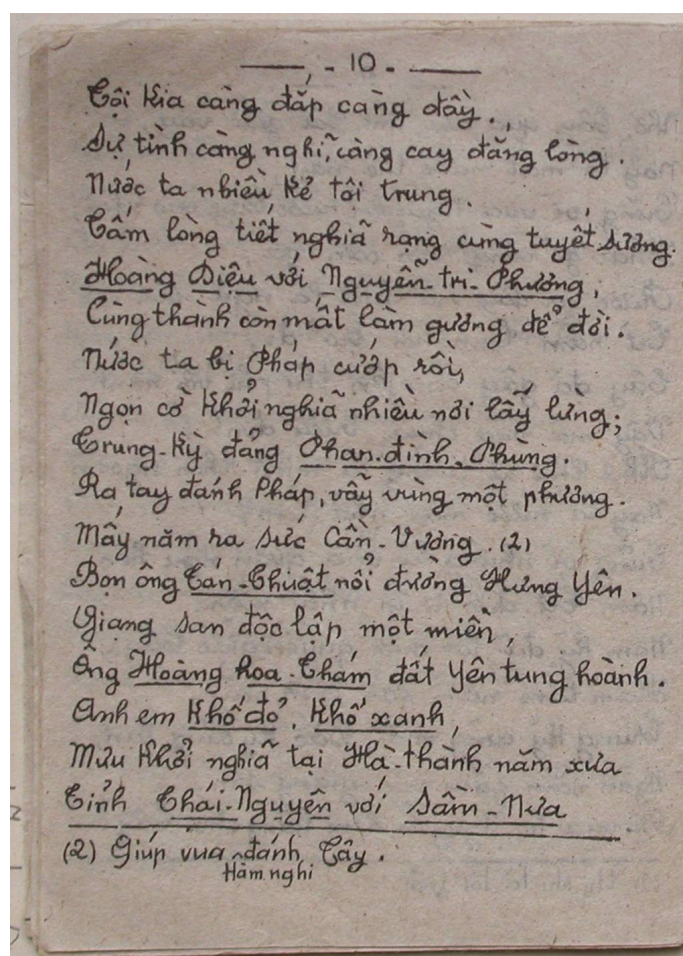 - 10 -
Tội kia càng đắp càng đầy.
Sự tình càng nghĩ, càng cay đắng lòng.
Nước ta nhiều kẻ tôi trung.
Tấm lòng tiết nghiã rạng cùng tuyết sương.
Hoàng Diệu với Nguyễn-tri-Phương,
Cùng thành còn mất làm gương để đời.
Nước ta bị Pháp cướp rồi,
Ngọn cờ khởi nghiã nhiều nơi lẫy lừng;
Trung-Kỳ đảng Phan-đình-Phùng.
Ra tay đánh Pháp, vẫy vùng một phương.
Mấy năm ra sức Cần-Vương. (2)
Bọn ông Tán-Thuật nổi đường Hưng Yên.
Giang san độc lập một miền,
Ông Hoàng hoa-Thám đất Yên tung hoành.
Anh em Khố đỏ, Khố xanh,
Mưu khởi nghiã tại Hà-thành năm xưa
Tỉnh Thái-Nguyên với Sầm-Nưa
(2) Giúp vua đánh Tây.
Hàm nghi